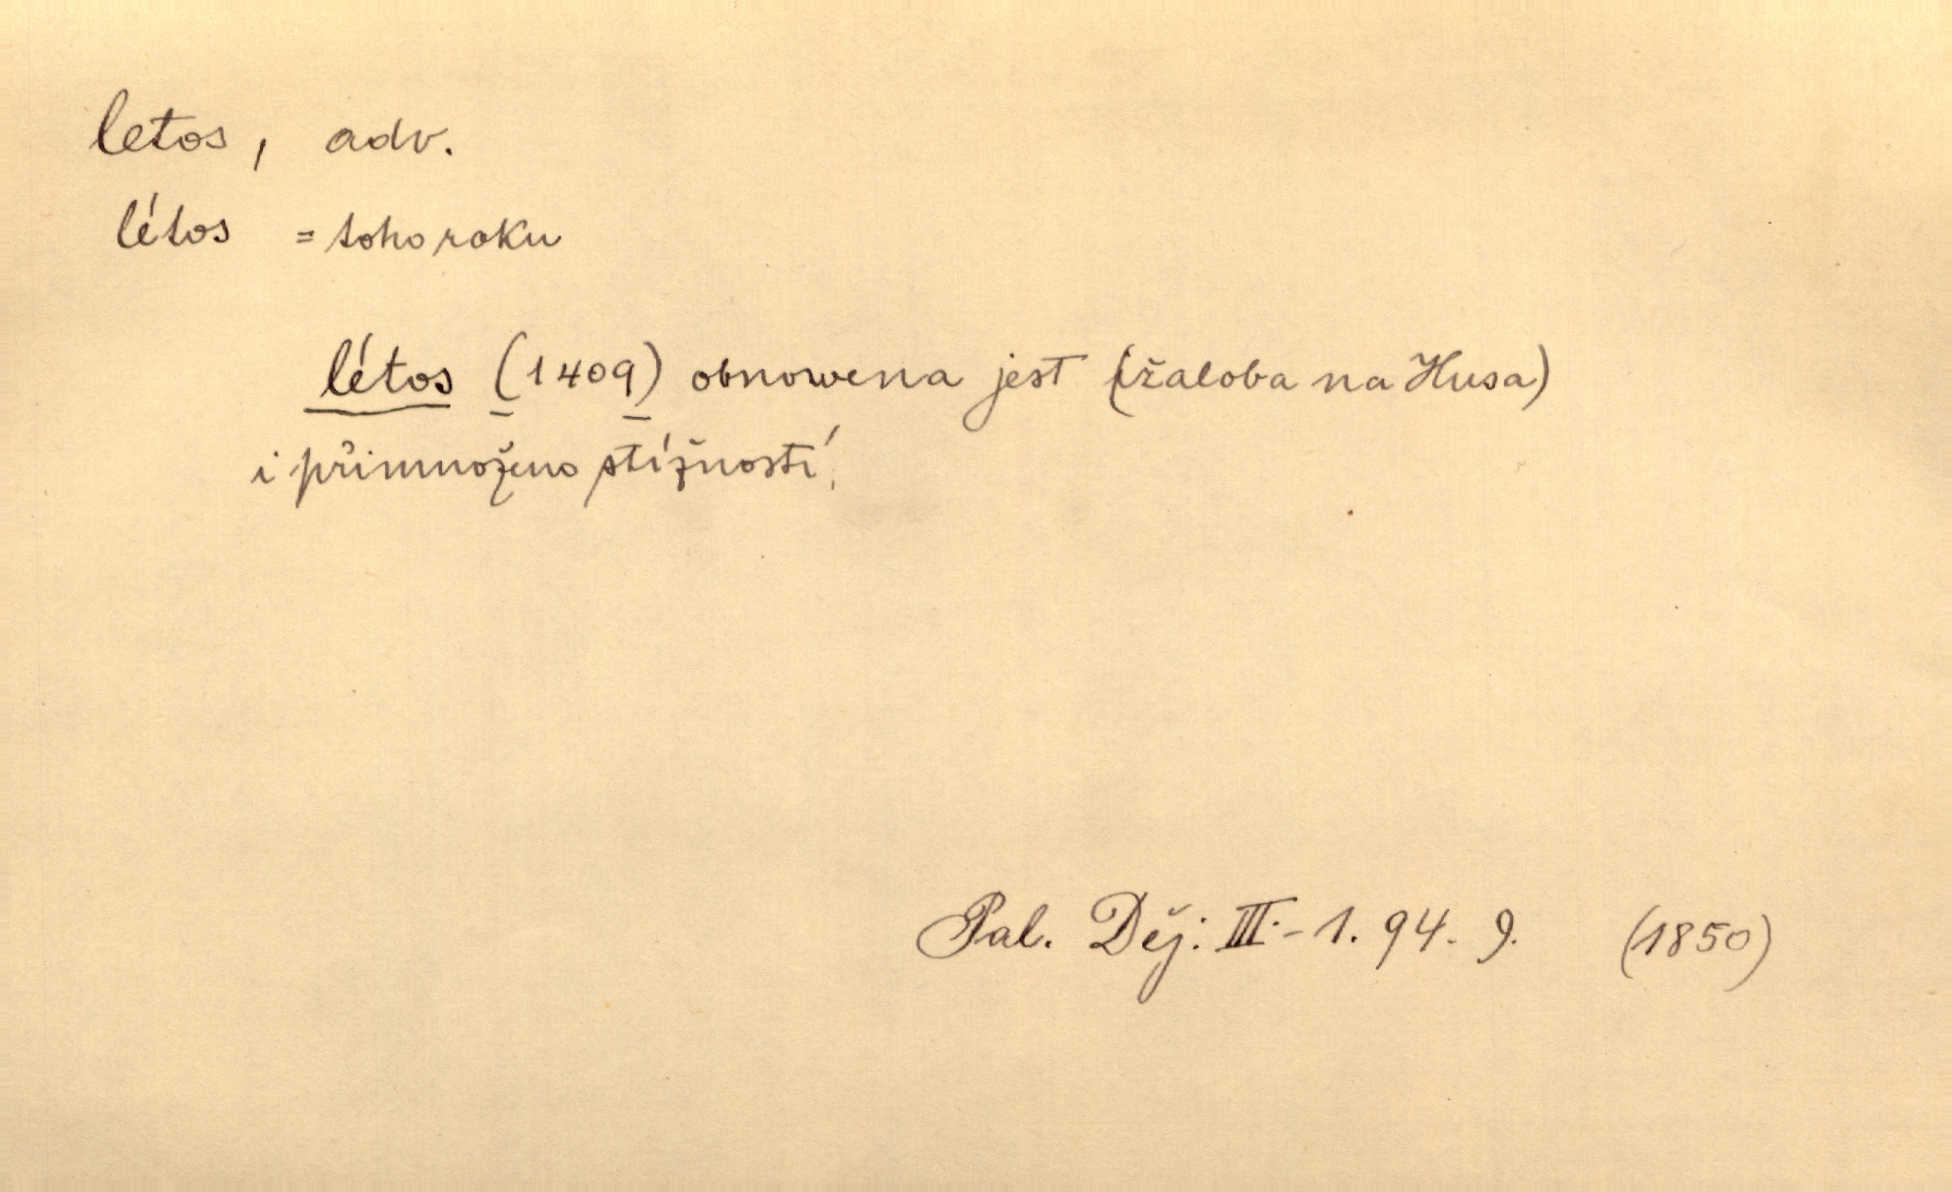 letos, adv.
létos = toho roku
létos (1409) obnowena jest (žaloba na Husa)
i přimnoženo stížností.
Pal. Děj. III.-1. 94. 9. (1850)